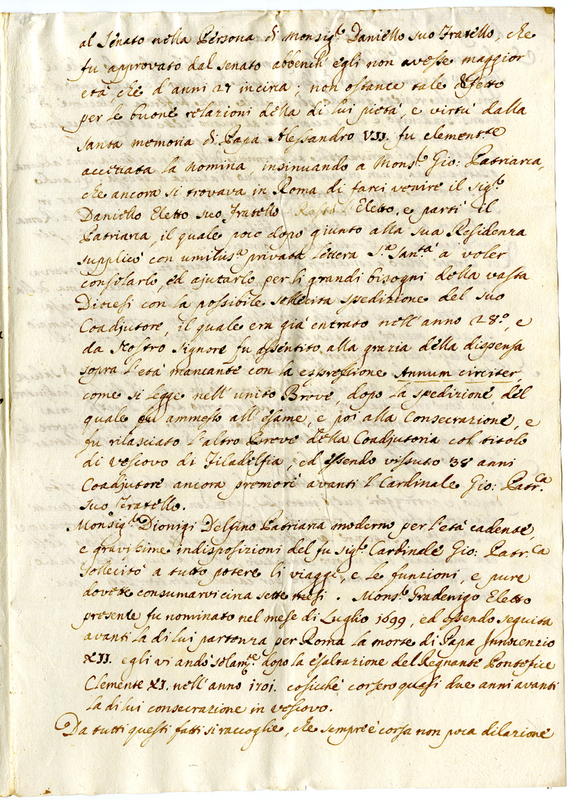 al Senato nella Persona di Monsig.r Daniello suo Fratello, che
fu approvato dal Senato abbench'egli non avesse maggior
età che d'anni 27 incirca; non ostante tale difetto
per le buone relazioni della di lui pietà, e virtù dalla
santa memoria di Papa Alessandro VII. fu clementte
accettata la Nomina, insinuando a Mons.r Gio: Patriarca,
che ancora si trovava in Roma di farci venire il Sig.r
Daniello Eletto suo Fratello Eletto, e partì il
Patriarca, il quale poco dopo giunto alla sua Residenza
supplicò con umiliss.a privata lettera S.a Sant.à a voler
consolarlo, ed ajutarlo per li grandi bisogni della vasta
Diocesi con la possibile sollecita spedizione del suo
Coadjutore, il quale era già entrato nell'anno 28.o, e
da Nostro Signore fu assentito alla grazia della dispensa
sopra l'età mancante con la espressione Annum circiter
come si legge nell'unito Breve, dopo la spedizione del
quale fu ammesso all'esame, e poi alla Consecrazione, e
fu rilasciato l'altro Breve della Coadjutoria col titolo
di Vescovo di Filadelfia, ed essendo vissuto 38 anni
Coadjutore ancora premorì avanti l'Cardinale Gio: Patr.ca
suo Fratello.
Monsig.r Dionigi Delfino Patriarca moderno per l'età cadente
e gravissime indisposizioni del fu Sig.r Cardinale Gio: Patr.ca
sollecitò a tutto potere li viaggi, e le funzioni, e pure
dovette consumarvi circa sette mesi. Mons.r Gradenigo Eletto
presente fu nominato nel mese di Luglio 1699, ed essendo seguita
avanti la di lui partenza per Roma la morte di Papa Innocenzio
XII. egli vi andò solam.te dopo la esaltazione del Regnante Pontefice
Clemente XI. nell'anno 1701. cosichè corsero quasi due anni avanti
la di lui consecrazione in Vescovo.
Da tutti questi fatti si raccoglie, che sempre è corsa non poca dilazione